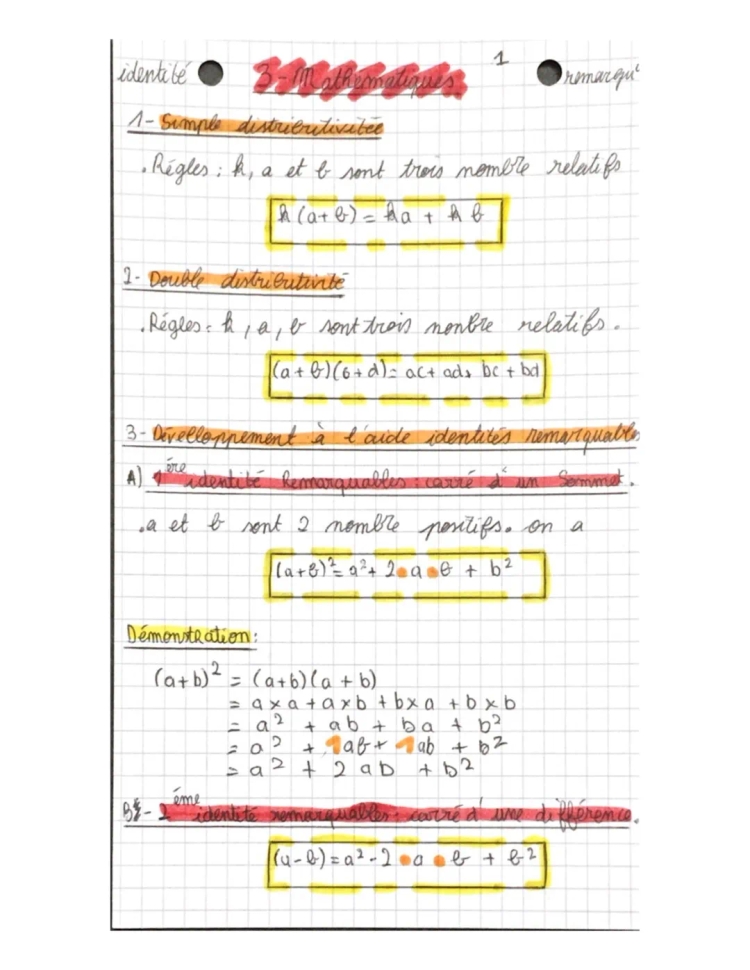 identité 3-Mathématiques 1 remarqu
1- Simple distributivitée
.Régles: k, a et b sont trois nombre relatifs
k(a+b)=ka + kb
2- Double distributivité
.Régles: k, a, b sont trois nonbre relatifs.
(a+b)(c+d)=ac+ad+ bc+bd
3-Dévelloppement à l'aide identités remarquable
A) 1ère identité Remarquables: carré d'un Sommet.
.a et b sont 2 nombre positifs. on a
(a+b)²=a²+2•a•b + b²
Démonstration:
(a+b)² = (a+b)(a+b)
= a×a+a×b+b×a+b×b
= a² + ab + ba + b²
= a² + 1ab+ 1ab + b²
= a² + 2ab + b²
B - 2éme identité remarquables: carré d'une différence.
(a-b)=a²-2•a•b + b²